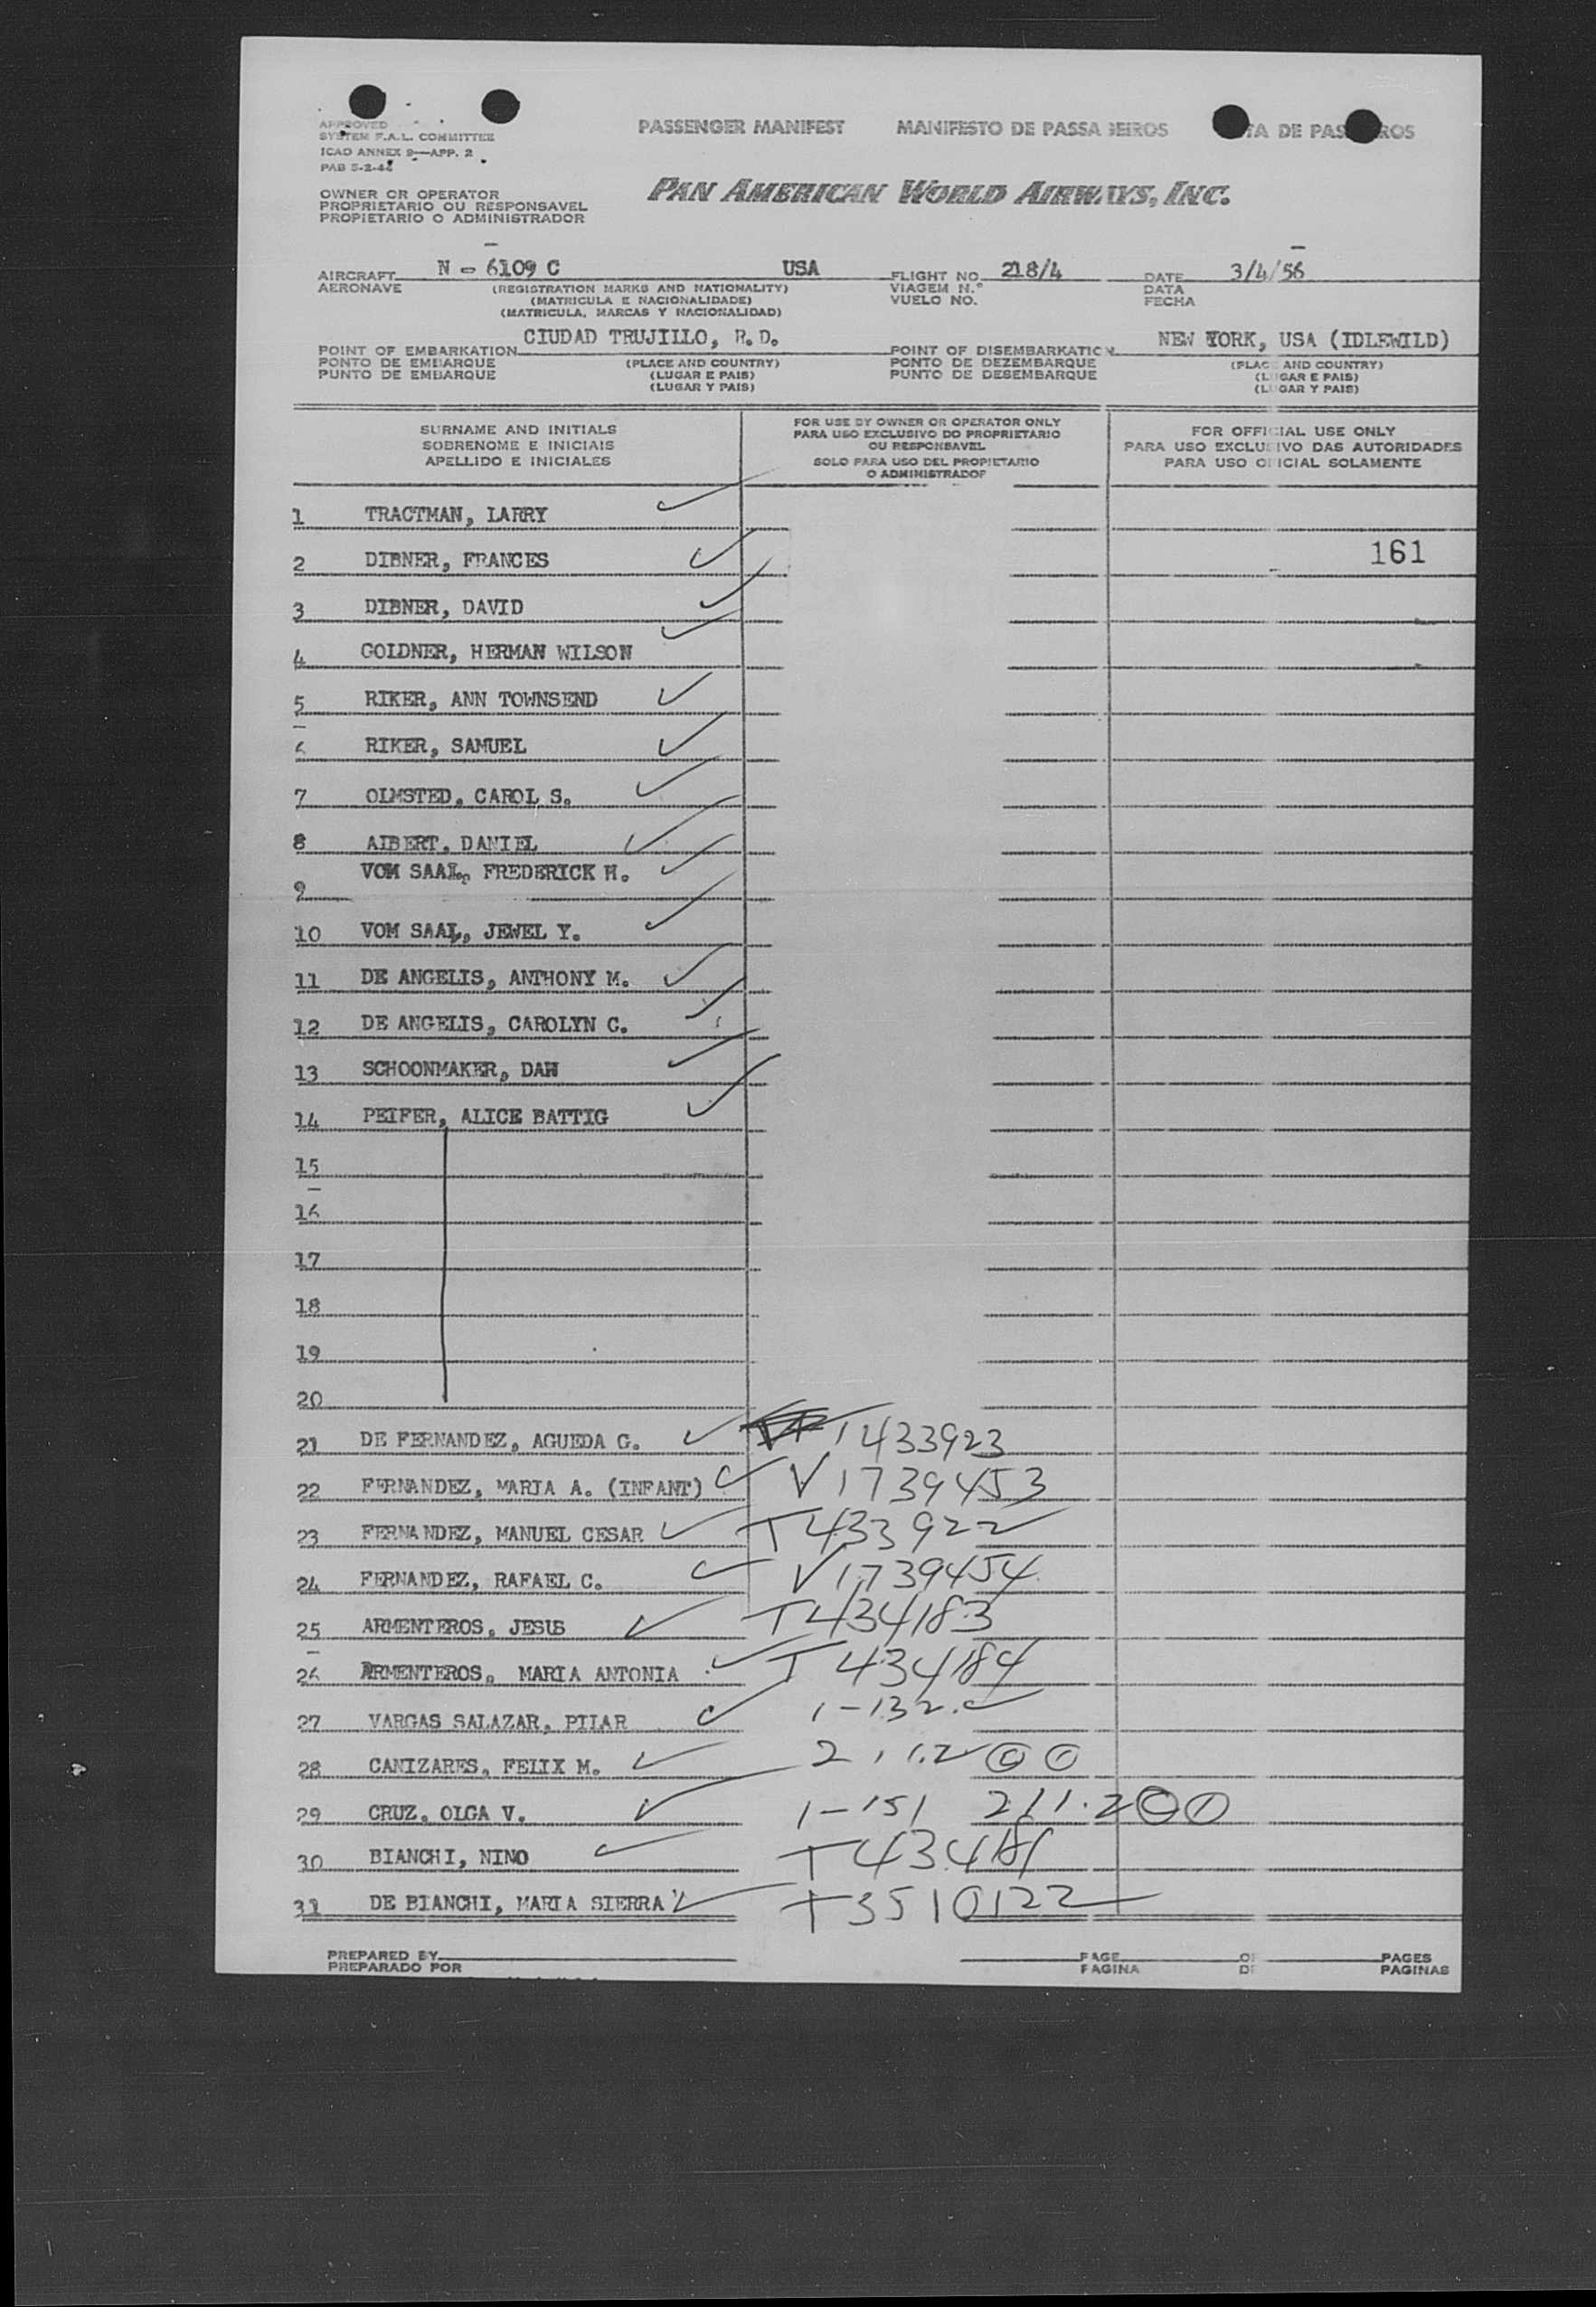 APPROVED
SYSTEM F.A.L. COMMITTEE
ICAO ANNEX 9—APP. 2
PASSENGER MANIFEST MANIFESTO DE PASSA EIROS TA DE PAS ROS
OWNER OR OPERATOR
PROPRIETARIO OU RESPONSAVEL
PROPIETARIO O ADMINISTRADOR
PAN AMERICAN WORLD AIRWAYS, INC.
AIRCRAFT N - 6109 C USA FLIGHT NO. 218/4 DATE 3/4/56
AERONAVE (REGISTRATION MARKS AND NATIONALITY) VIAGEM N.° DATA
(MATRICULA E NACIONALIDADE) VUELO NO. FECHA
(MATRICULA, MARCAS Y NACIONALIDAD)
POINT OF EMBARKATION CIUDAD TRUJILLO, R.D. POINT OF DISEMBARKATION NEW YORK, USA (IDLEWILD)
PONTO DE EMBARQUE (PLACE AND COUNTRY) PONTO DE DEZEMBARQUE (PLACE AND COUNTRY)
PUNTO DE EMBARQUE (LUGAR E PAIS) PUNTO DE DESEMBARQUE (LUGAR E PAIS)
(LUGAR Y PAIS) (LUGAR Y PAIS)
SURNAME AND INITIALS
SOBRENOME E INICIAIS
APELLIDO E INICIALES
FOR USE BY OWNER OR OPERATOR ONLY
PARA USO EXCLUSIVO DO PROPRIETARIO
OU RESPONSAVEL
SOLO PARA USO DEL PROPIETARIO
O ADMINISTRADOR
FOR OFFICIAL USE ONLY
PARA USO EXCLUSIVO DAS AUTORIDADES
PARA USO OFICIAL SOLAMENTE
1 TRACTMAN, LARRY
2 DIBNER, FRANCES 161
3 DIBNER, DAVID
4 GOLDNER, HERMAN WILSON
5 RIKER, ANN TOWNSEND
6 RIKER, SAMUEL
7 OLMSTED, CAROL S.
8 ALBERT, DANIEL
9 VOM SAAL, FREDERICK H.
10 VOM SAAL, JEWEL Y.
11 DE ANGELIS, ANTHONY M.
12 DE ANGELIS, CAROLYN C.
13 SCHOONMAKER, DAN
14 PEIFER, ALICE BATTIG
15
16
17
18
19
20
21 DE FERNANDEZ, AGUEDA G. 433923
22 FERNANDEZ, MARIA A. (INFANT) V 1739453
23 FERNANDEZ, MANUEL CESAR T 433922
24 FERNANDEZ, RAFAEL C. V 1739454
25 ARMENTEROS, JESUS T 434183
26 ARMENTEROS, MARIA ANTONIA T 434184
27 VARGAS SALAZAR, PILAR 1-132
28 CANIZARES, FELIX M.
29 CRUZ, OLGA V. 1-151
30 BIANCHI, NINO
31 DE BIANCHI, MARIA SIERRA T 3510122
PREPARED BY PAGE OF PAGES
PREPARADO POR PAGINA DE PAGINAS